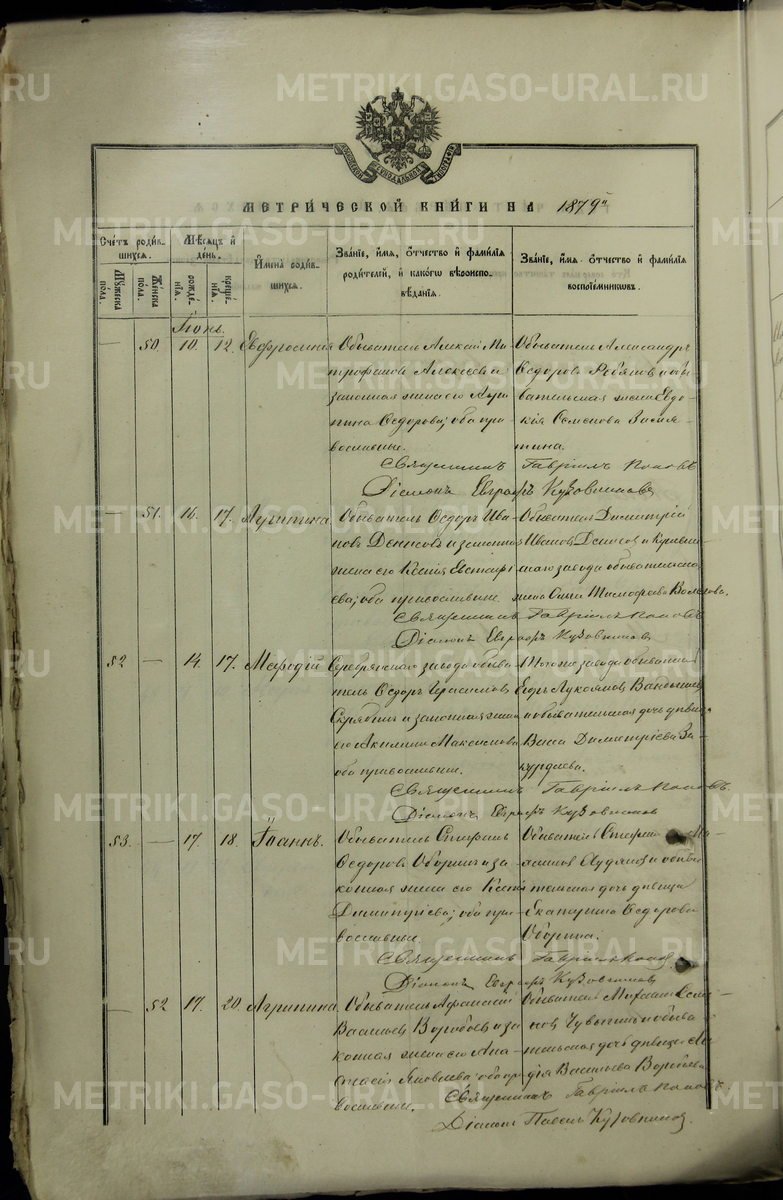 METRIKI.GASO-URAL.RU
МЕТРИ́ЧЕСКОЙ КНИ́ГИ НА 1879 г.
Сче́тъ роди́вшихся.
Мѣ́сяцъ и́ де́нь.
И҆мена̀ роди́вшихся.
Зва́нїе, и҆́мя, ѻ҆́тчество и҆ фами́лїя роди́телей, и҆ како́гѡ вѣроисповѣ́данїя.
Зва́нїе, и҆́мя ѻ҆́тчество и҆ фами́лїя воспрїе́мниковъ.
Мꙋ́жеска по́ла.
Же́нска по́ла.
рожде́нїя.
креще́нїя.
Іюнь.
— 50. 10. 12. Евфросинія
Обыватель Алексій Ми-
трофановъ Алексѣевъ и
законная жена его Агри-
пина Ѳедорова; оба пра-
вославные.
Обыватель Александръ
Ѳедоровъ и обы-
вательская жена Евдо-
кія Семенова Замя-
тина.
Священникъ Гавріилъ Поповъ
Діаконъ Евграфъ Кузовниковъ
— 51. 16. 17. Агрипина.
Обыватель Ѳедоръ Ива-
новъ Денисовъ и законная
жена его Ксенія Евстафі-
ева; оба православные.
Обыватель Димитрій
Ивановъ Денисовъ и
заводо обывательская
жена Тимофеева
Священникъ Гавріилъ Поповъ
Діаконъ Евграфъ Кузовниковъ
52 — 14. 17. Мардій
Серебрянскаго завода обыва-
тель Ѳедоръ Герасимовъ
и законная жена
его Акилина Максимова
оба православные.
Того же завода обыватель
Лукояновъ
и обывательская дочь дѣвица
Васса Димитріева За-
курдаева.
Священникъ Гавріилъ Поповъ.
Діаконъ Евграфъ Кузовниковъ
53. — 17. 18. Іоаннъ.
Обыватель Стефанъ
Ѳедоровъ Оборинъ и за-
конная жена его Ксенія
Димитріева; оба пра-
вославные.
Обыватель Стефанъ Ма-
ксимовъ и обыва-
тельская дочь дѣвица
Екатерина Ѳедорова
Оборина.
Священникъ Гавріилъ Поповъ
Діаконъ Евграфъ Кузовниковъ
— 52 17. 20. Агрипина.
Обыватель Афанасій
Васильевъ Воробьевъ и за-
конная жена его Ана-
стасія Яковлева; оба пра-
вославные.
Обыватель Михаилъ Семе-
новъ и обыва-
тельская дочь дѣвица Ли-
дія Васильева Воробьева
Священникъ Гавріилъ Поповъ.
Діаконъ Павелъ Кузовниковъ.